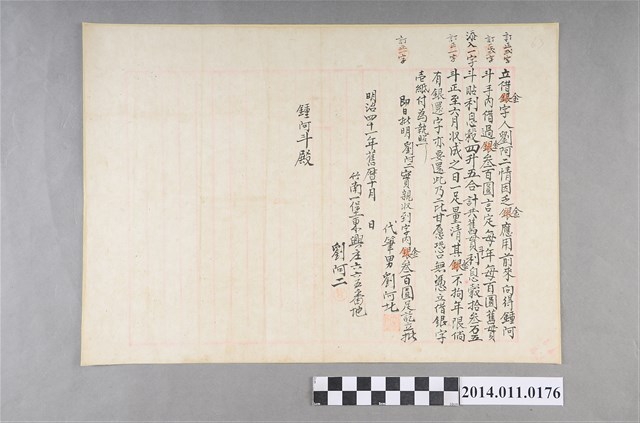 訂正弍字
訂弍字
添入一字
訂正一字
訂正一字
立借銀金字人劉阿二情因乏銀金應用前來向得鍾阿
斗手內借過銀金叁百圓言定每年每百圓舊貫
斗貼利息穀四斗五合計共舊貫利息穀拾叁石五
斗正至六月收成之日一足量清其銀金不拘年限倘
有銀還字亦要還此乃二比甘愿恐口無憑立借銀字
壱紙付為執照
即日批明劉阿二實親收到字內銀金叁百圓足訖立批
代筆男劉阿
明治四十一年舊曆十月 日
竹南一堡東興庄六六五番地
劉阿二
鍾阿斗殿
2014.011.0176